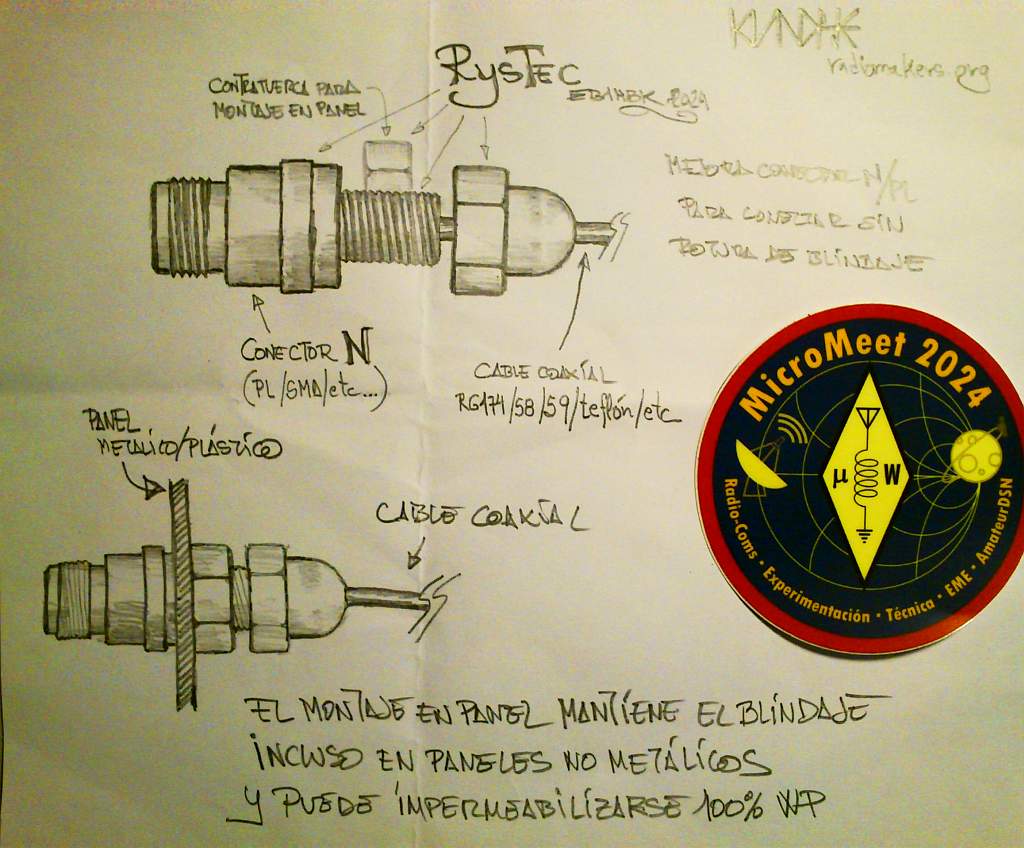 KUNDHE
radiomakers.org
RYSTEC
EB1HBK 2024
CONTRATUERCA PARA
MONTAJE EN PANEL
MEJORA CONECTOR N/PL
PARA CONECTAR SIN
ROTURA DE BLINDAJE
CONECTOR N
(PL/SMA/etc...)
CABLE COAXIAL
RG174/58/59/teflón/etc
PANEL
METALICO/PLÁSTICO
CABLE COAXIAL
MicroMeet 2024
µ W
Radio-Coms · Experimentación · Técnica · EME · AmateurDSN
EL MONTAJE EN PANEL MANTIENE EL BLINDAJE
INCLUSO EN PANELES NO METÁLICOS
Y PUEDE IMPERMEABILIZARSE 100% WP